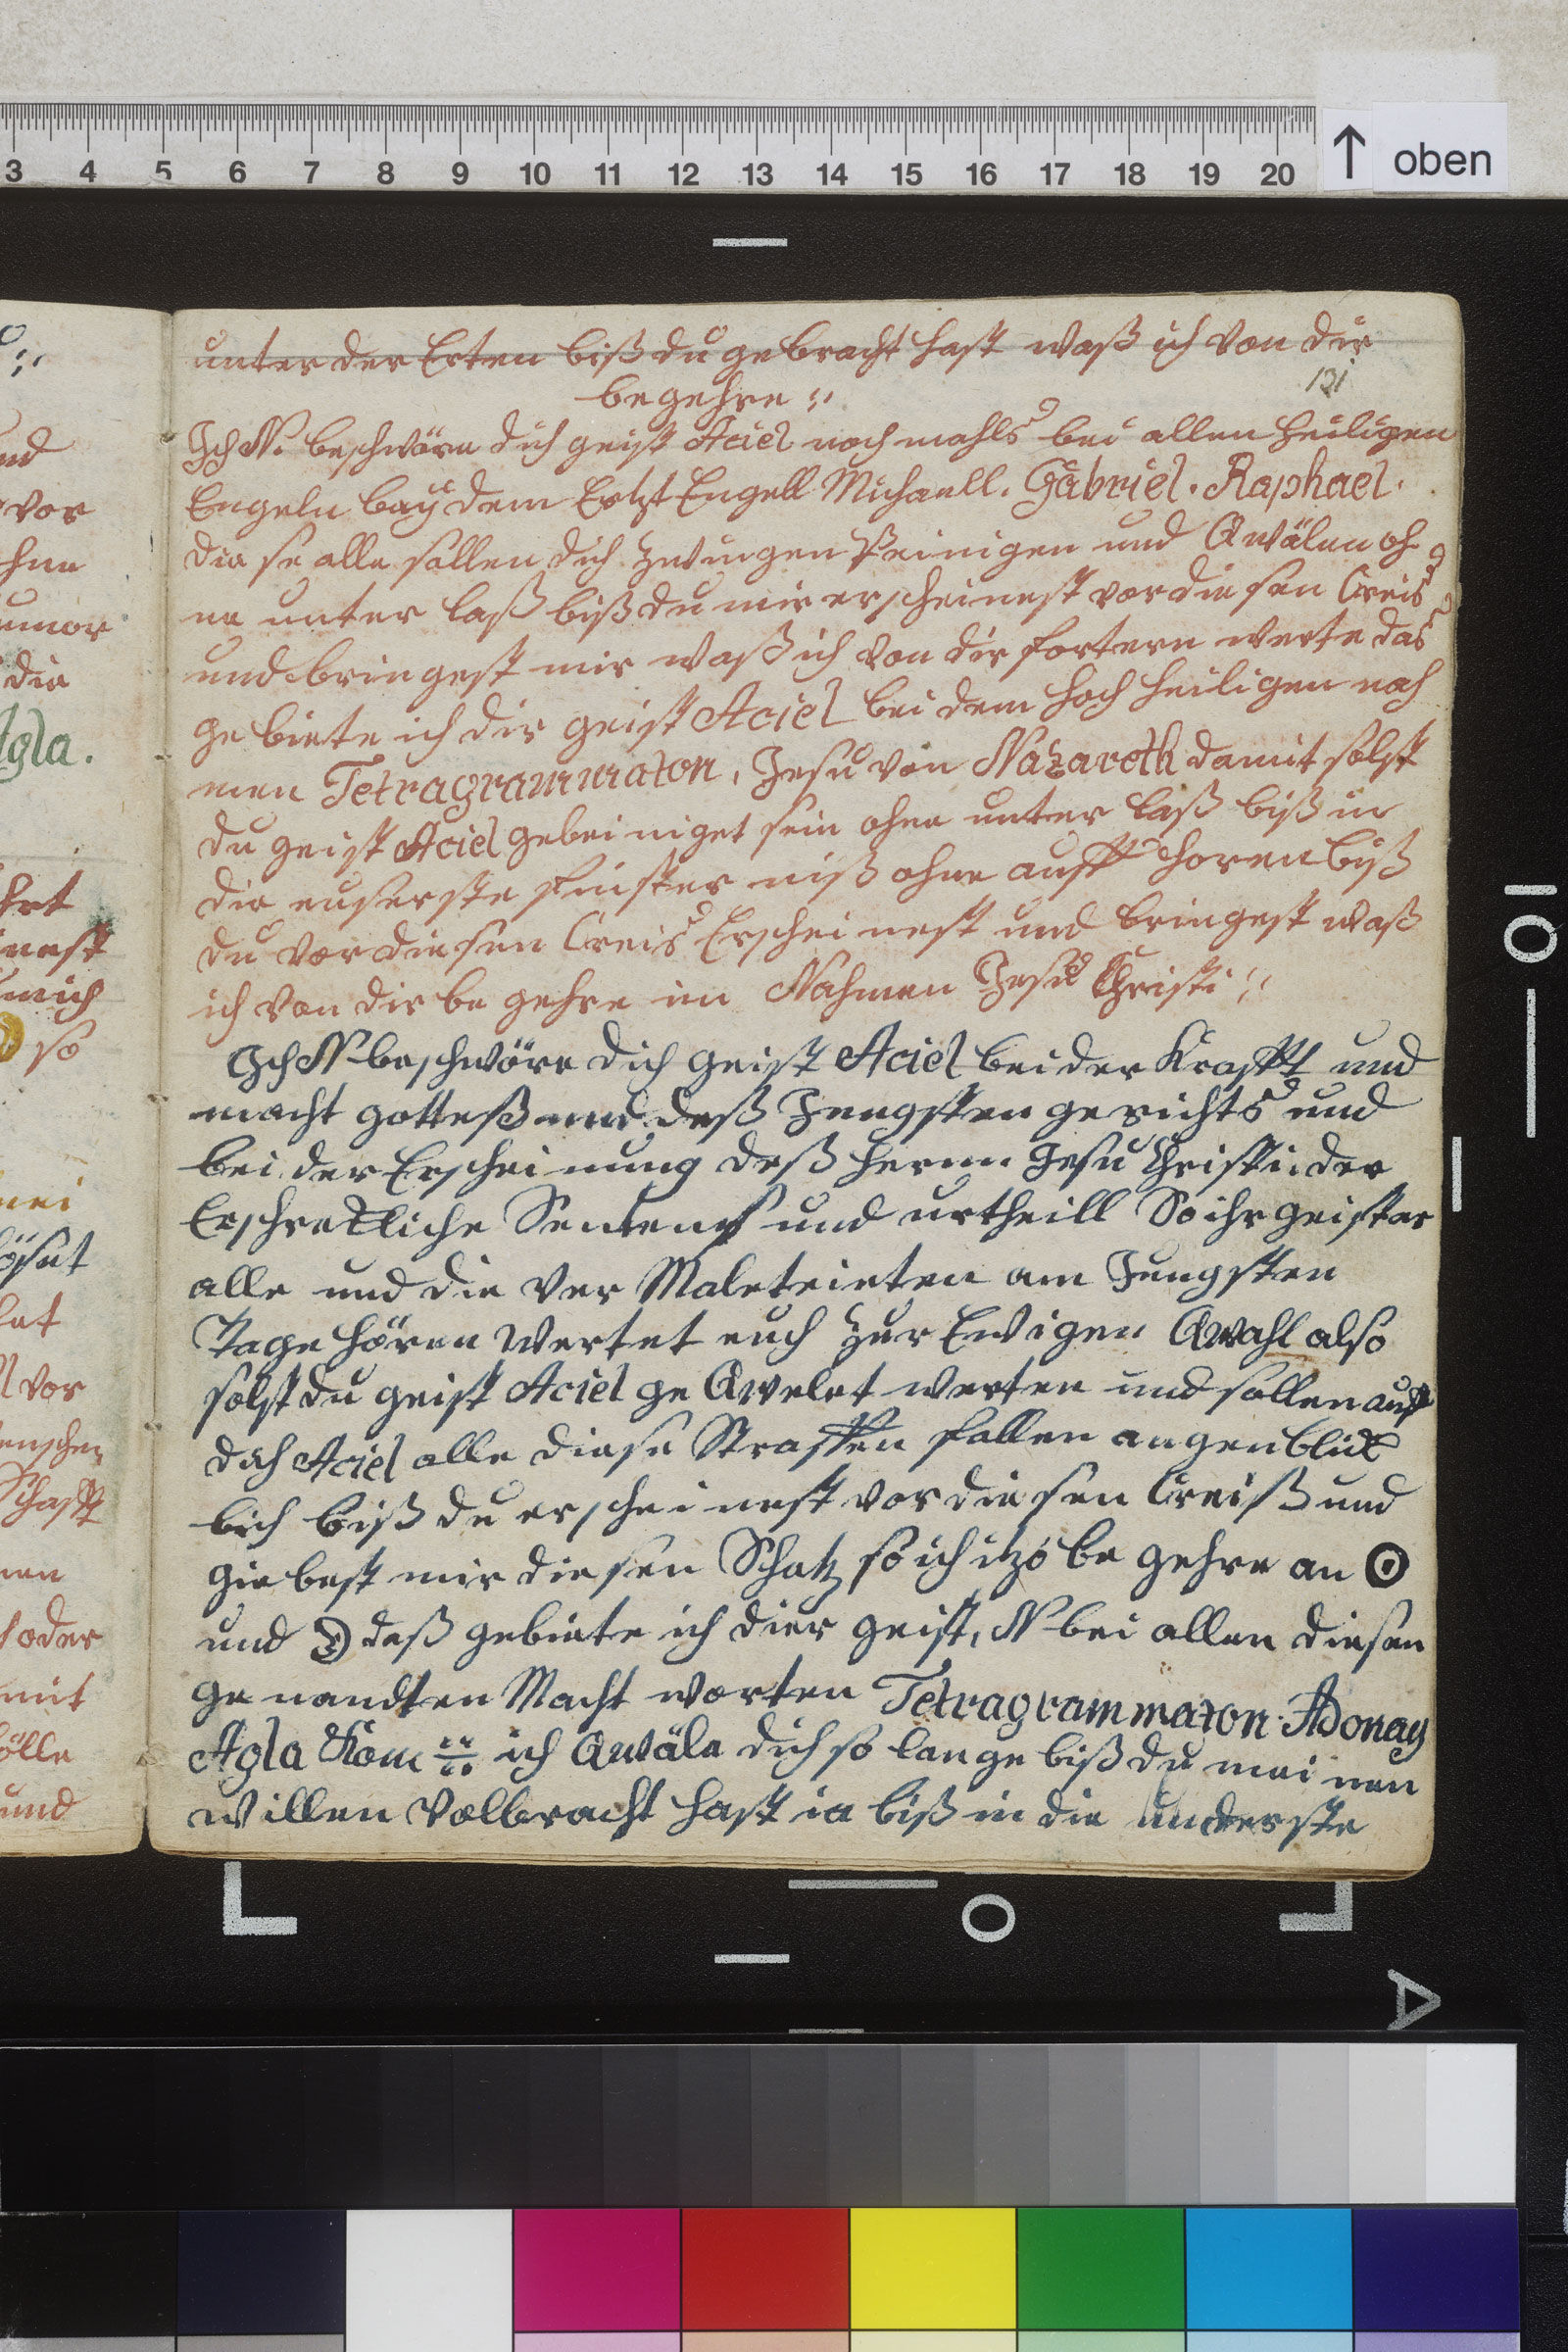 3 4 5 6 7 8 9 10 11 12 13 14 15 16 17 18 19 20
↑ oben
unter der Erten biß du gebracht hast waß ich von dir
131
begehre
Ich N. beschwöre dich geist Aciel noch mahls bei allen heiligen
Engeln bay dem Ertzt Engell Michaell. Gabriel. Raphael.
die se alle sollen dich zwingen Peinigen und Qwälen oh
ne unter laß biß du mir erscheinest vor diesen Creis
und bringest mir waß ich von dir fortern werte das
ge biete ich dir geist Aciel bei dem hoch heiligen nah
men Tetragrammaton, Jesu von Nazareth damit solst
du geist Aciel gebeiniget sein ohne unter laß biß in
die euserste finster niß ohne auff horen biß
du vor diesen Creis Erschei nest und bringest waß
ich von dir be gehre im Nahmen Jesu Christi
Ich N beschwöre dich geist Aciel bei der Krafft und
macht gotteß und deß Jengsten gerichts und
bei der Erschei nung deß hernn Jesu Christi der
Erschreckliche Sentens und urtheill So ihr geister
alle und die ver Maleteieten am Jungsten
Tage hören wertet euch zur Ewigen Qwahl also
solst du geist Aciel ge Qwelet werten und sollen auff
dich Aciel alle diese Straffen fallen augenblick
lich biß du erscheinest vor diesen Creiß und
giebest mir diesen Schatz so ich itzo be gehre an ☉
und ☽ daß gebiete ich dier geist, N bei allen diesen
ge nandten Macht worten Tetragrammaton. Adonay
Agla Kom ich Qwäle dich so lange biß du mei nen
willen volbracht hast ia biß in die underste